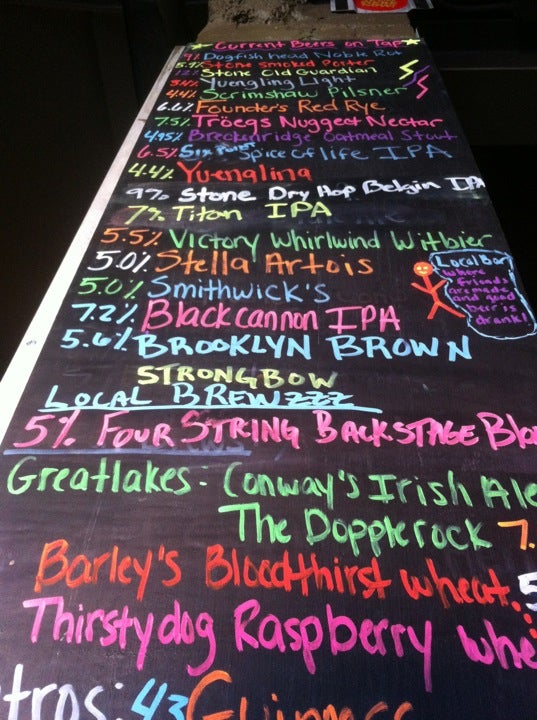 Current Beers on Tap
9% Dogfish head Noble Rot
5.9% Stone Smoked Porter
12% Stone Old Guardian
3.4% Yuengling Light
4.4% Scrimshaw Pilsner
6.6% Founder's Red Rye
7.5% Tröegs Nugget Nectar
4.95% Breckenridge Oatmeal Stout
6.5% Six Point Spice of life IPA
4.4% Yuengling
9% Stone Dry Hop Belgin IPA
7% Titan IPA
5.5% Victory Whirlwind Witbier
5.0% Stella Artois
5.0% Smithwick's
7.2% Blackcannon IPA
5.6% BROOKLYN BROWN
STRONGBOW
Local Bar
where
friends
are made
and good
beer is
drank!
LOCAL BREWZZZ
5% FOUR STRING BACKSTAGE Blo
Greatlakes: Conway's Irish Ale
The Dopplerock 7.
Barley's Bloodthirst wheat. 5
Thirstydog Raspberry whe
tros: 43 Guinness